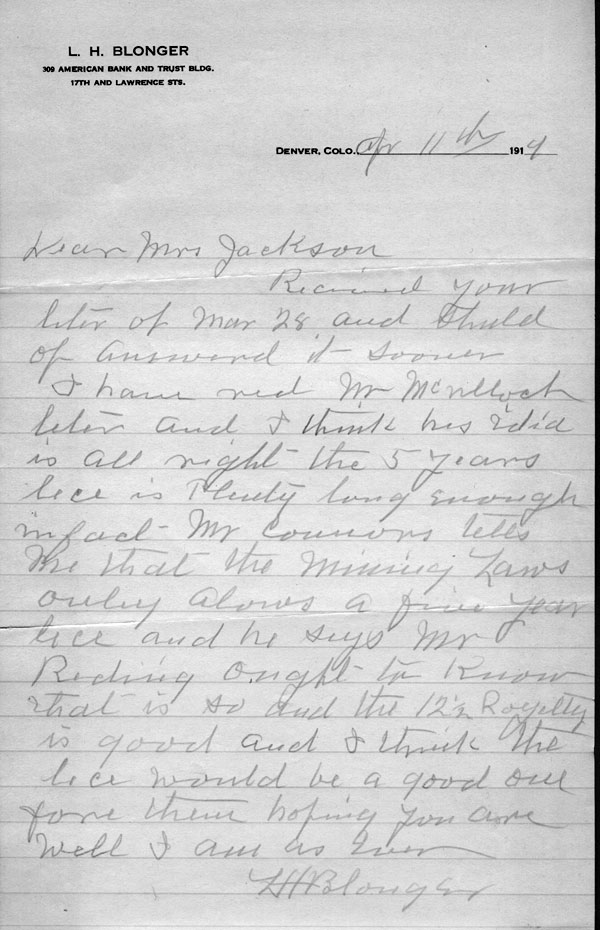 L. H. BLONGER
309 AMERICAN BANK AND TRUST BLDG.
17TH AND LAWRENCE STS.
DENVER, COLO. Apr 11th 1914
Dear Mrs Jackson
Recived your
leter of Mar 28 and Shuld
of Answerd it sooner
I have red Mr McCulloch
leter and I think his Idid
is all right the 5 years
lece is Plenty long enough
infact Mr Connors tells
Me that the Mining Laws
onley Alows a five year
lece and he says Mr
Reding Ought to Know
that is so and the 12½ Royelty
is good and I think the
lece would be a good one
fore them hoping you are
Well I am as Ever
LHBlonger